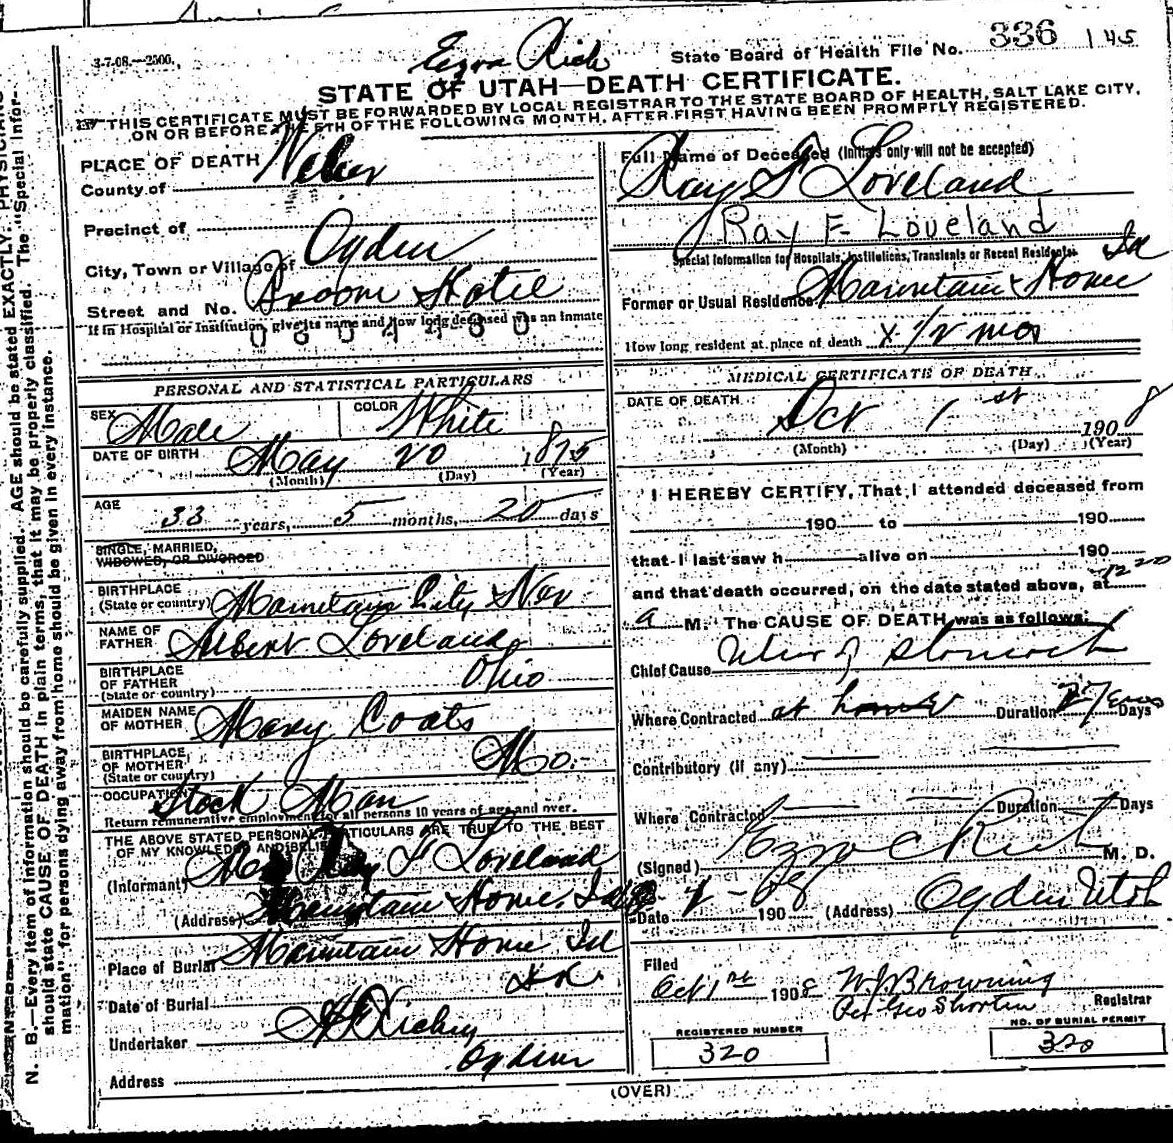 3-7-08.—2500.
Ezra Rich
State Board of Health File No. 336 145
STATE OF UTAH—DEATH CERTIFICATE.
THIS CERTIFICATE MUST BE FORWARDED BY LOCAL REGISTRAR TO THE STATE BOARD OF HEALTH, SALT LAKE CITY,
ON OR BEFORE THE 5TH OF THE FOLLOWING MONTH, AFTER FIRST HAVING BEEN PROMPTLY REGISTERED.
N. B.—Every item of information should be carefully supplied. AGE should be stated EXACTLY. PHYSICIANS
should state CAUSE OF DEATH in plain terms, that it may be properly classified. The "Special Infor-
mation" for persons dying away from home should be given in every instance.
PLACE OF DEATH
County of Weber
Precinct of
City, Town or Village of Ogden
Street and No. Broom Hotel
If in Hospital or Institution, give its name and how long deceased was an inmate
0604460
PERSONAL AND STATISTICAL PARTICULARS
SEX Male COLOR White
DATE OF BIRTH May 20 1875
(Month) (Day) (Year)
AGE 33 years, 5 months, 20 days
SINGLE, MARRIED,
WIDOWED, OR DIVORCED
BIRTHPLACE
(State or country) Mountain City Nev
NAME OF
FATHER Albert Loveland
BIRTHPLACE
OF FATHER Ohio
(State or country)
MAIDEN NAME
OF MOTHER Mary Coats
BIRTHPLACE
OF MOTHER Mo.
(State or country)
OCCUPATION Stock Man
Return remunerative employment for all persons 10 years of age and over.
THE ABOVE STATED PERSONAL PARTICULARS ARE TRUE TO THE BEST
OF MY KNOWLEDGE AND BELIEF
(Informant) Mrs Ray F Loveland
(Address) Mountain Home, Ida
Place of Burial Mountain Home Id
Date of Burial
Undertaker Richey
Address Ogden
Full Name of Deceased (Initials only will not be accepted)
Ray F Loveland
Ray F. Loveland
Special Information for Hospitals, Institutions, Transients or Recent Residents.
Former or Usual Residence Mountain Home Id
How long resident at place of death x 1/2 mos
MEDICAL CERTIFICATE OF DEATH
DATE OF DEATH
Oct 1st 1908
(Month) (Day) (Year)
I HEREBY CERTIFY, That I attended deceased from
190 to 190
that I last saw h alive on 190
and that death occurred, on the date stated above, at 1220
a M. The CAUSE OF DEATH was as follows:
Chief Cause Ulcer of stomach
Where Contracted at home Duration 2 Years Days
Contributory (if any)
Where Contracted Duration Days
(Signed) Ezra C Rich M. D.
Date 190 (Address) Ogden Utah
Filed
Oct 1st 1908 W J Browning
Geo Shorten Registrar
REGISTERED NUMBER
320
NO. OF BURIAL PERMIT
320
(OVER)